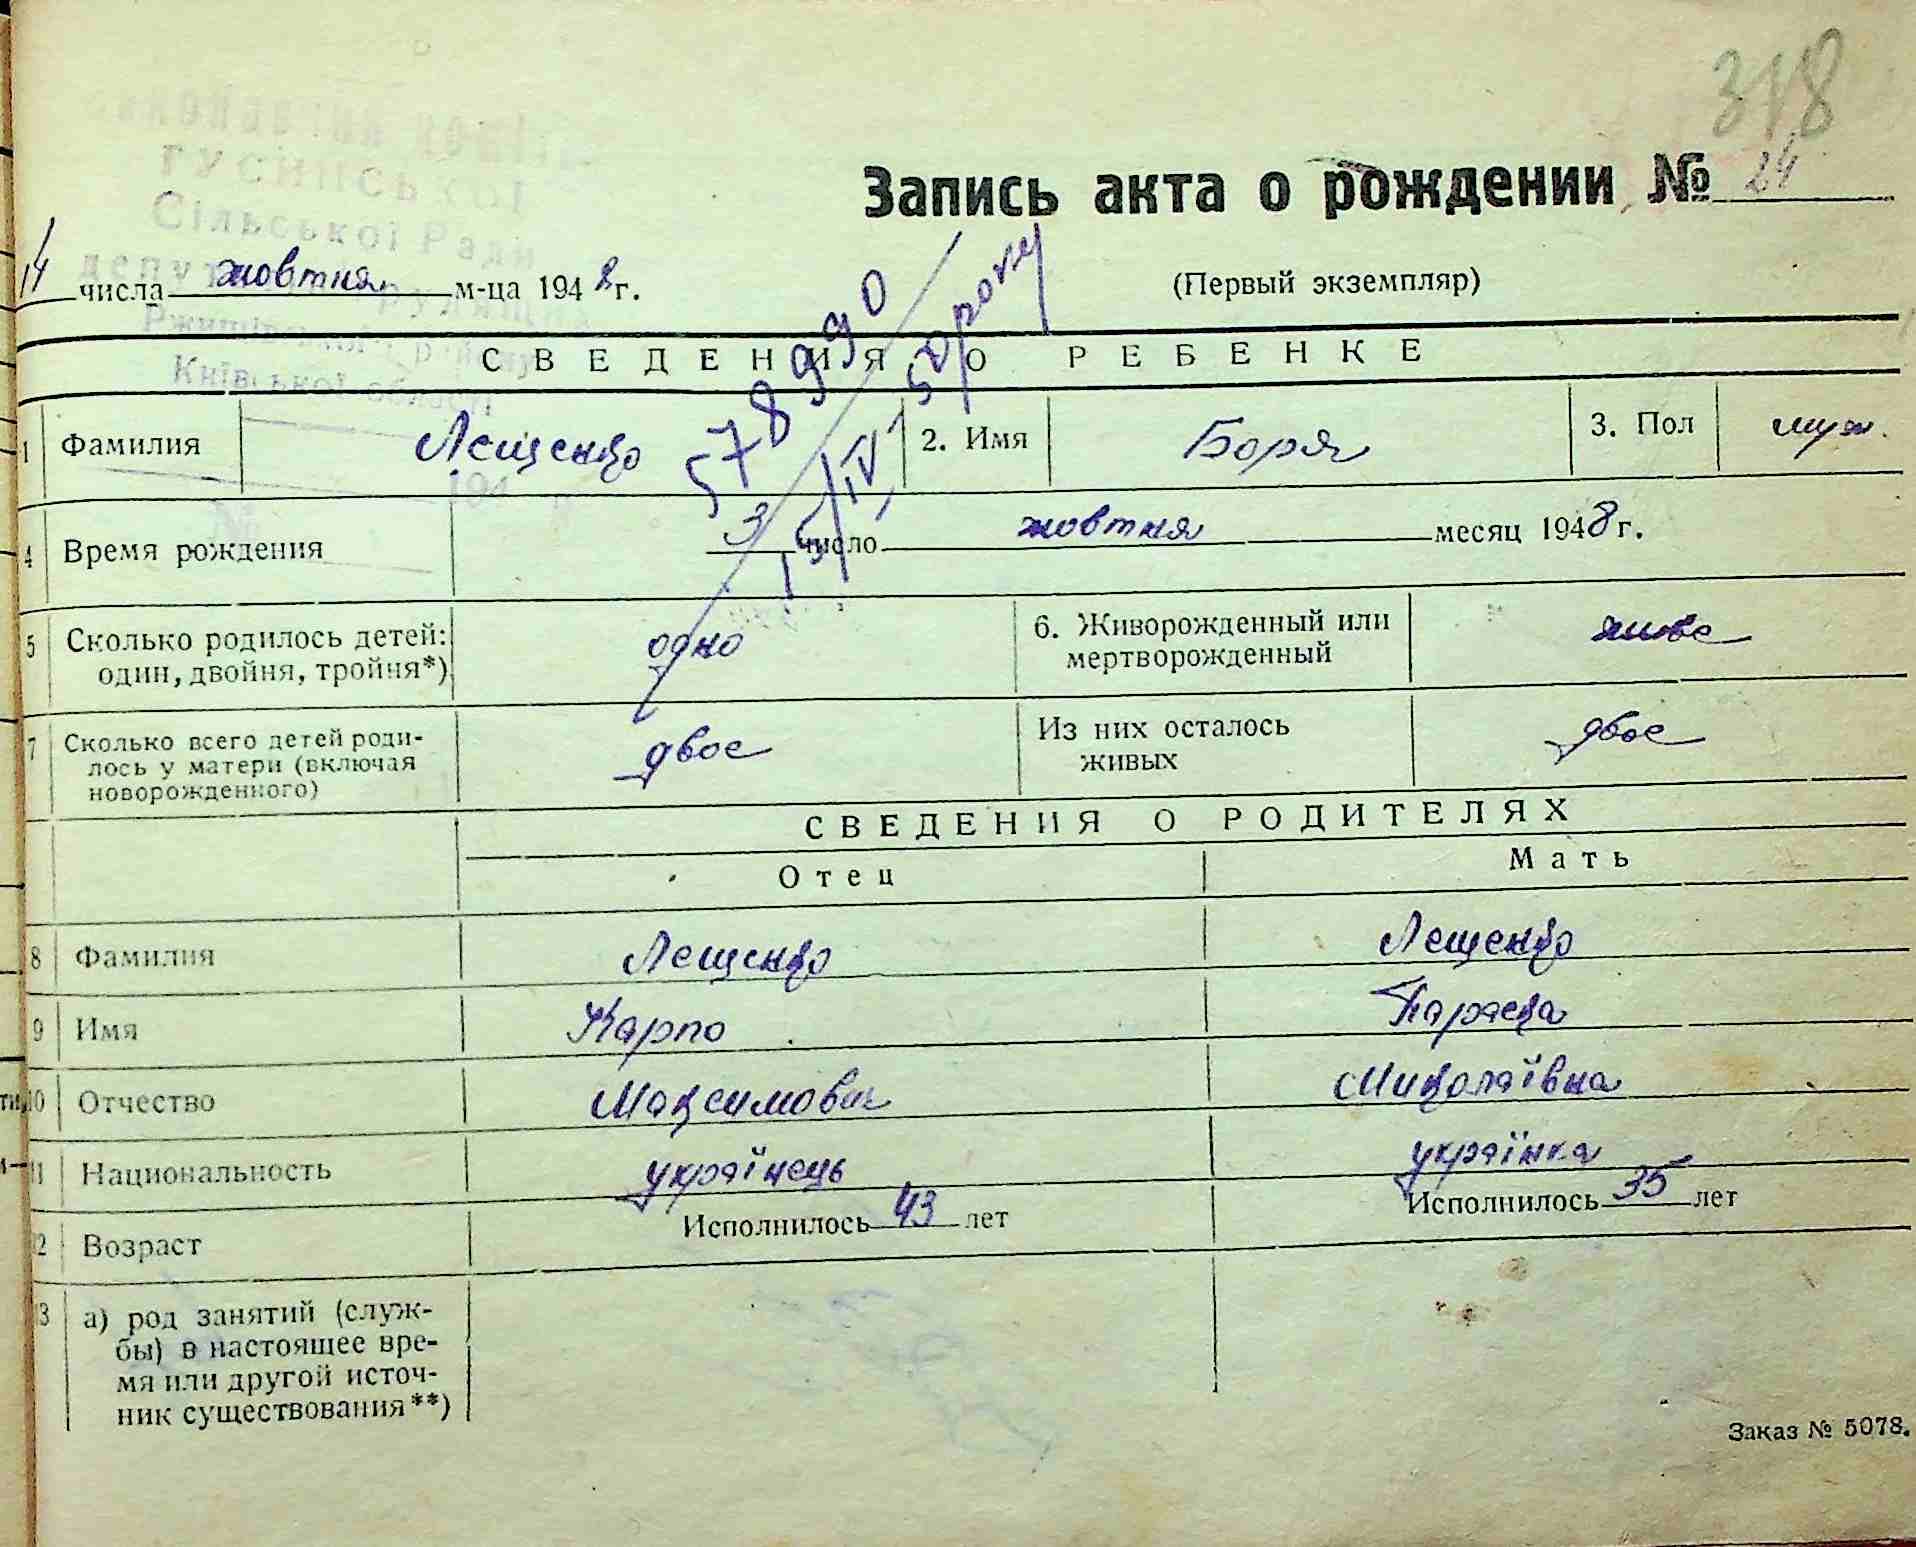 318
ГУСИНСЬКОЇ
Сільської Ради
Ржищівськ
Київської області
194
№
Запись акта о рождении № 24
14 числа жовтня м-ца 1948 г.
(Первый экземпляр)
578990
15/IV 50 року
СВЕДЕНИЯ О РЕБЕНКЕ
1 Фамилия Лещенко 2. Имя Боря 3. Пол муж.
4 Время рождения 3 число жовтня месяц 1948 г.
5 Сколько родилось детей: одно 6. Живорожденный или живе
один, двойня, тройня*) мертворожденный
7 Сколько всего детей роди- двоє Из них осталось двоє
лось у матери (включая живых
новорожденного)
СВЕДЕНИЯ О РОДИТЕЛЯХ
Отец Мать
8 Фамилия Лещенко Лещенко
9 Имя Карпо Параска
10 Отчество Максимович Миколаївна
11 Национальность українець українка
12 Возраст Исполнилось 43 лет Исполнилось 35 лет
13 а) род занятий (служ-
бы) в настоящее вре-
мя или другой источ-
ник существования**)
Заказ № 5078.